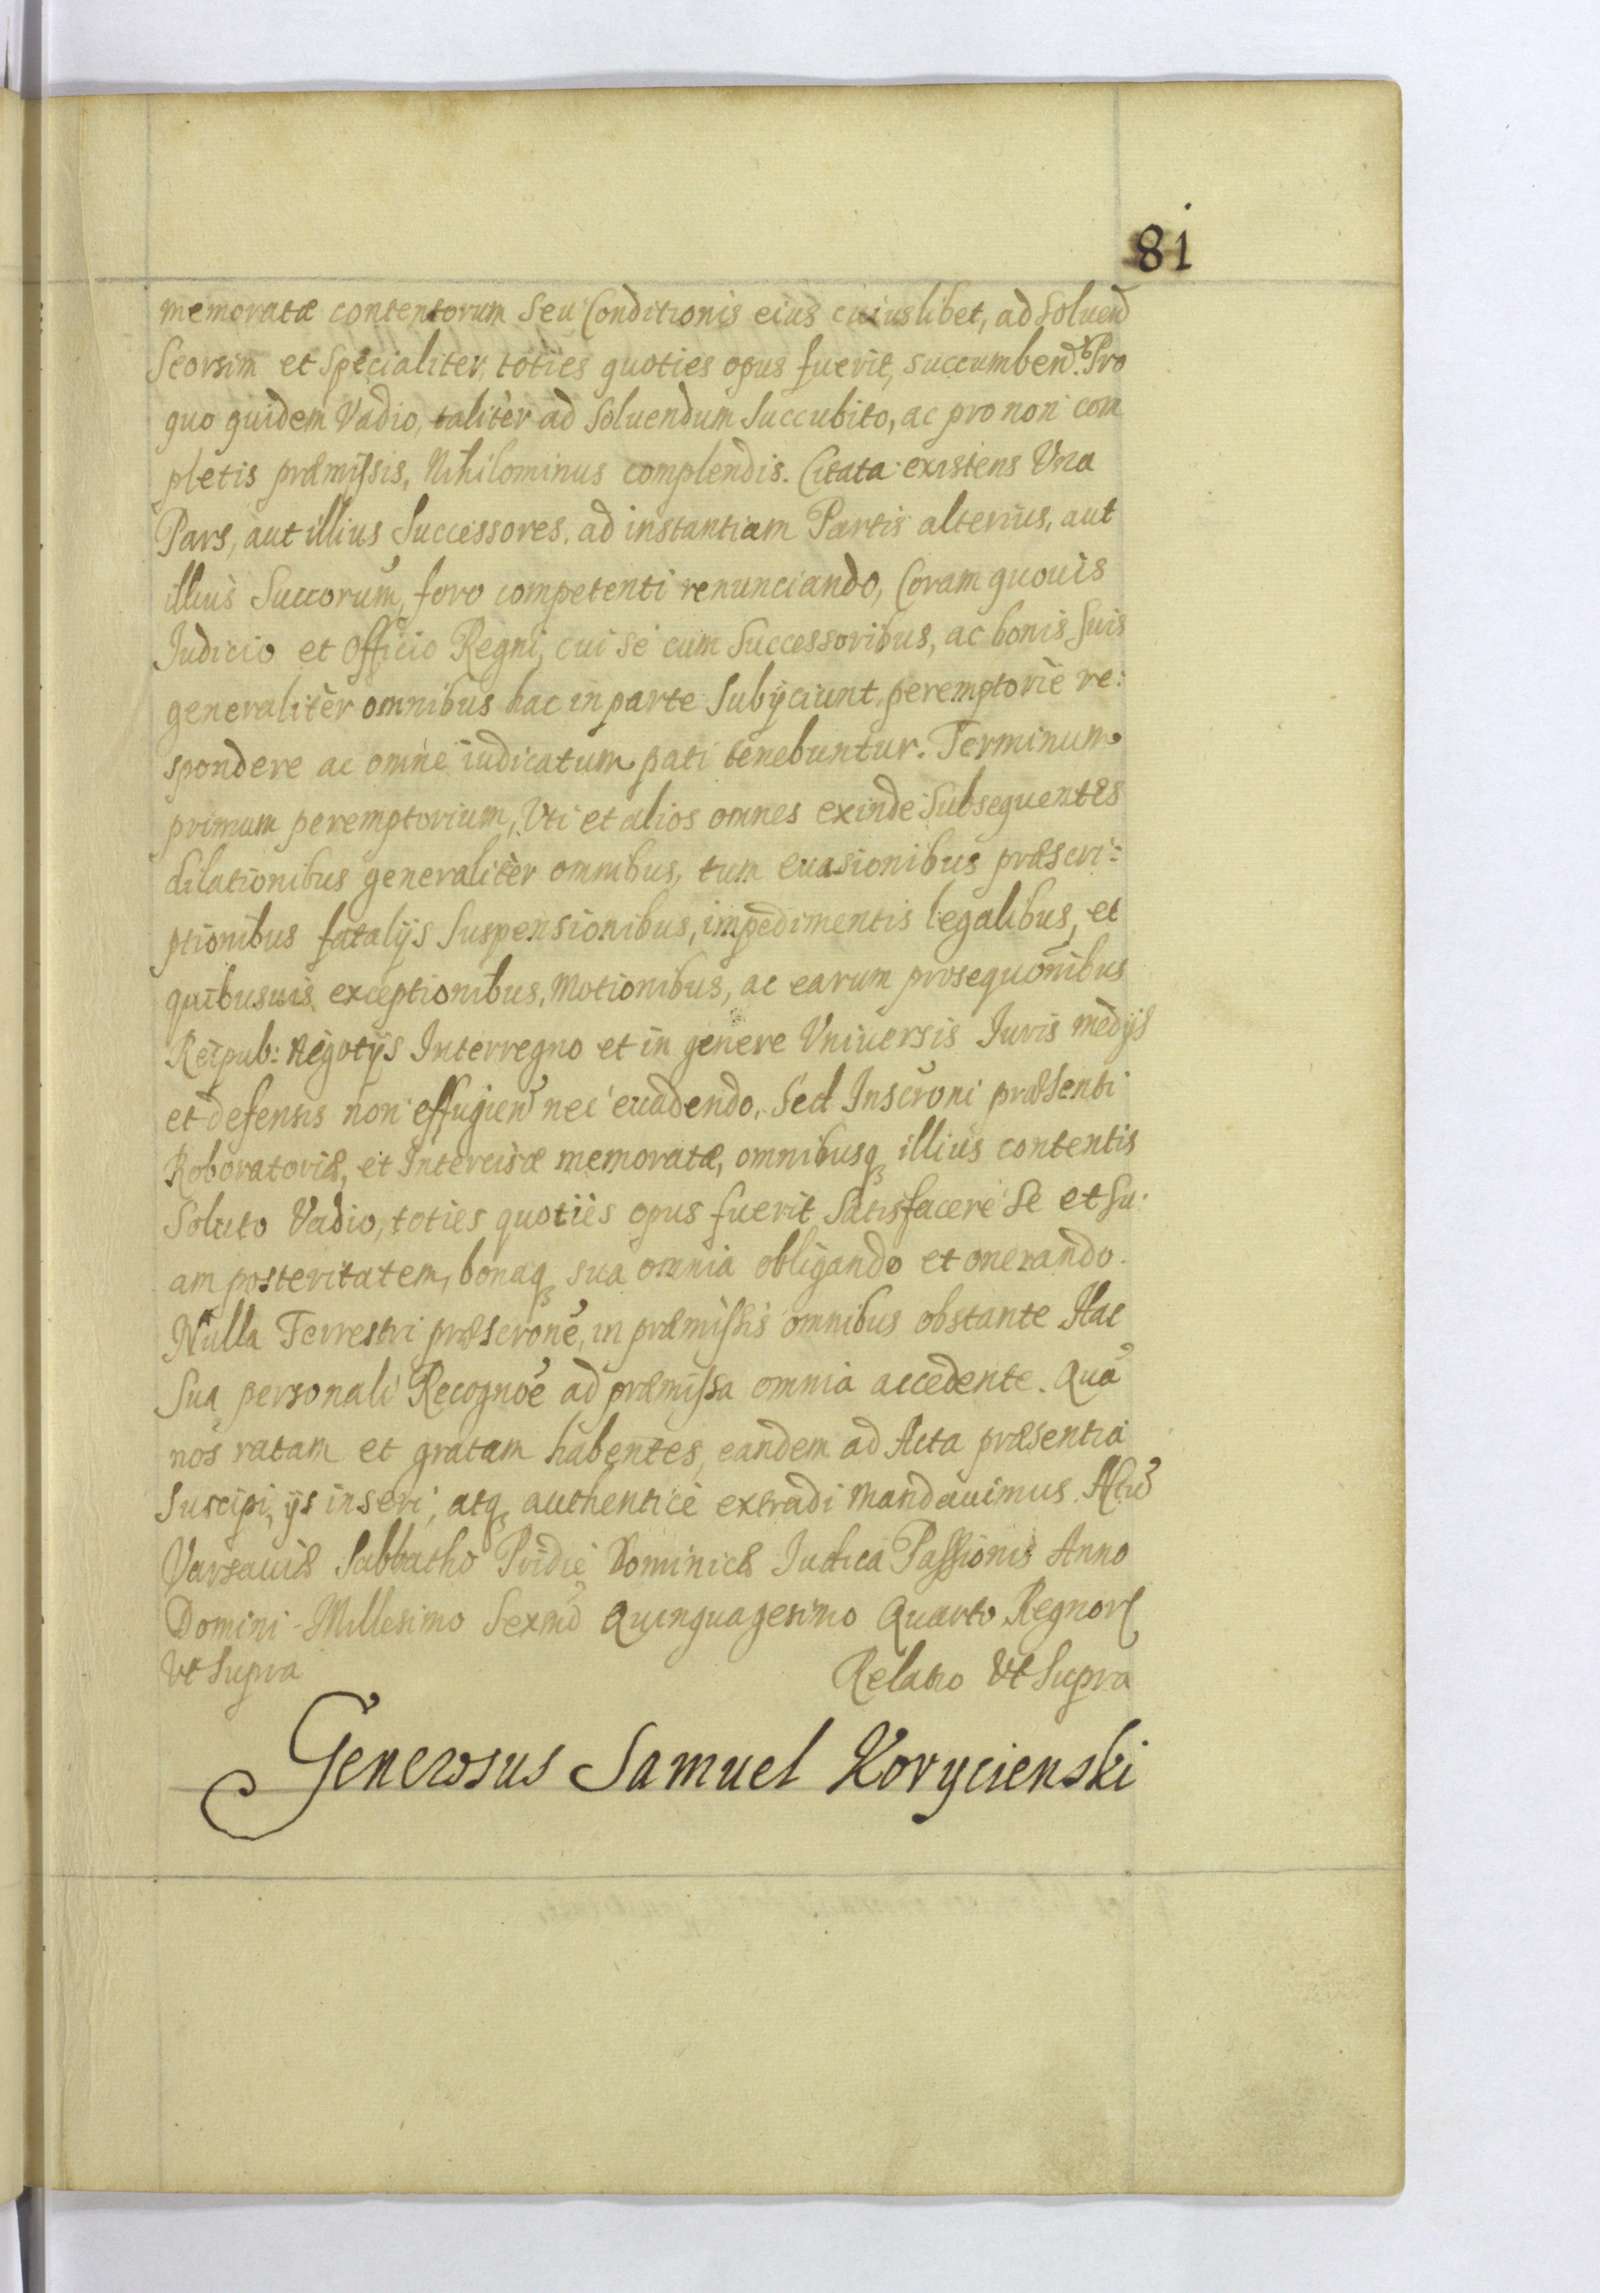 81
memoratæ contentorum Seu Conditionis eius cuiuslibet, ad Soluend
Seorsim et Specialiter, toties quoties opus fuerit, succumbend. Pro
quo quidem Vadio, taliter ad Soluendum Succubito, ac pro non com
pletis præmissis, Nihilominus complendis. Citata existens Una
Pars, aut illius Successores, ad instantiam Partis alterius, aut
illius Succorum, foro competenti renunciando, Coram quouis
Iudicio et Officio Regni, cui se cum Successoribus, ac bonis Suis
generaliter omnibus hac in parte Subijciunt, peremptorie re:
spondere ac omne iudicatum pati tenebuntur. Terminum
primum peremptorium, Uti et alios omnes exinde Subsequentes
dilationibus generaliter omnibus, tum euasionibus præscri:
ptionibus fatalijs Suspensionibus, impedimentis legalibus, et
quibusuis exceptionibus, Motionibus, ac earum prosequonibus
Reipub: Negotijs Interregno et in genere Uniuersis Iuris medijs
et defensis non effugien nec euadendo. Sed Inscroni præsenti
Roboratoriæ, et Intercisæ memoratæ, omnibusq illius contentis
Soluto Vadio, toties quoties opus fuerit Satisfacere Se et Su:
am posteritatem, bonaq sua omnia obligando et onerando.
Nulla Terrestri præscrone, in præmissis omnibus obstante Hac
Sua personali Recognoe ad præmissa omnia accedente. Qua
nos ratam et gratam habentes, eandem ad Acta præsentia
Suscipi, ijs inseri, atq authentice extradi Mandauimus. Actu
Varsauiæ Sabbatho Pridie Dominicæ Iudica Passionis Anno
Domini Millesimo Sexmo Quinquagesimo Quarto Regnor
Ut Supra Relatio Ut Supra
Generosus Samuel Korycienski